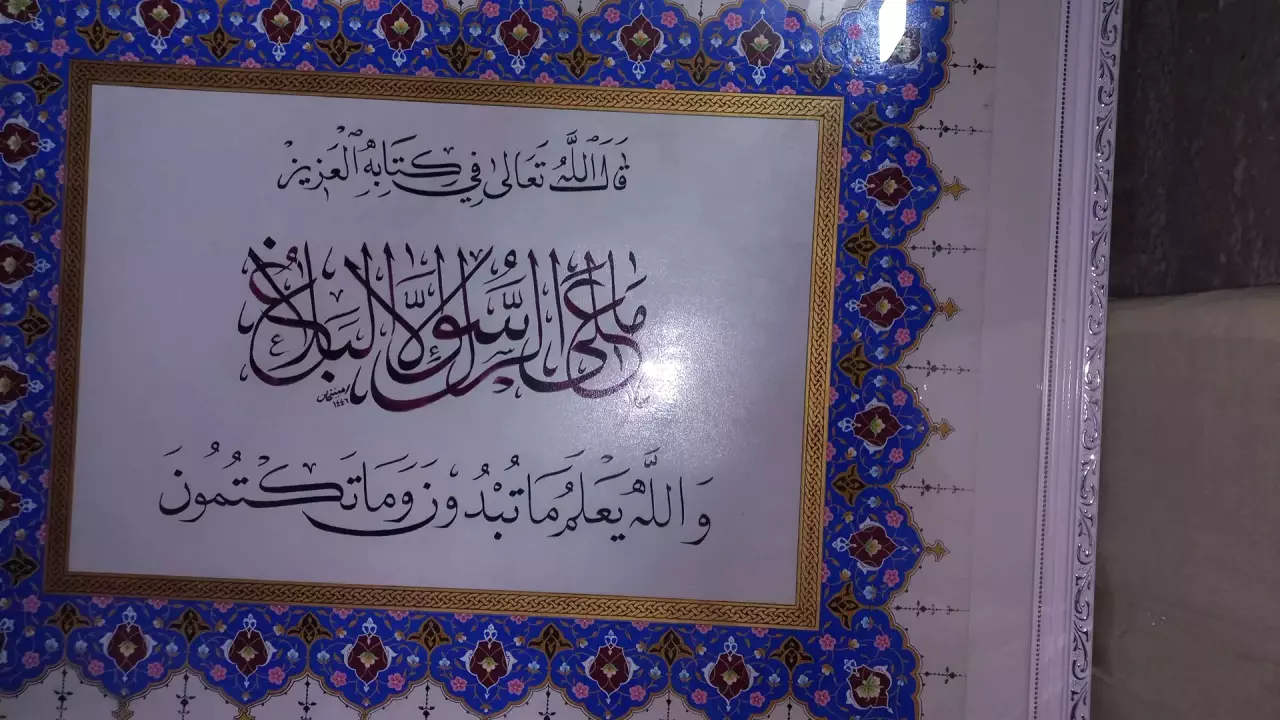 قَالَ اللَّهُ تَعَالَىٰ فِي كِتَابِهِ الْعَزِيزِ
مَا عَلَى الرَّسُولِ إِلَّا الْبَلَاغُ
١٤٤٦
وَاللَّهُ يَعْلَمُ مَا تُبْدُونَ وَمَا تَكْتُمُونَ